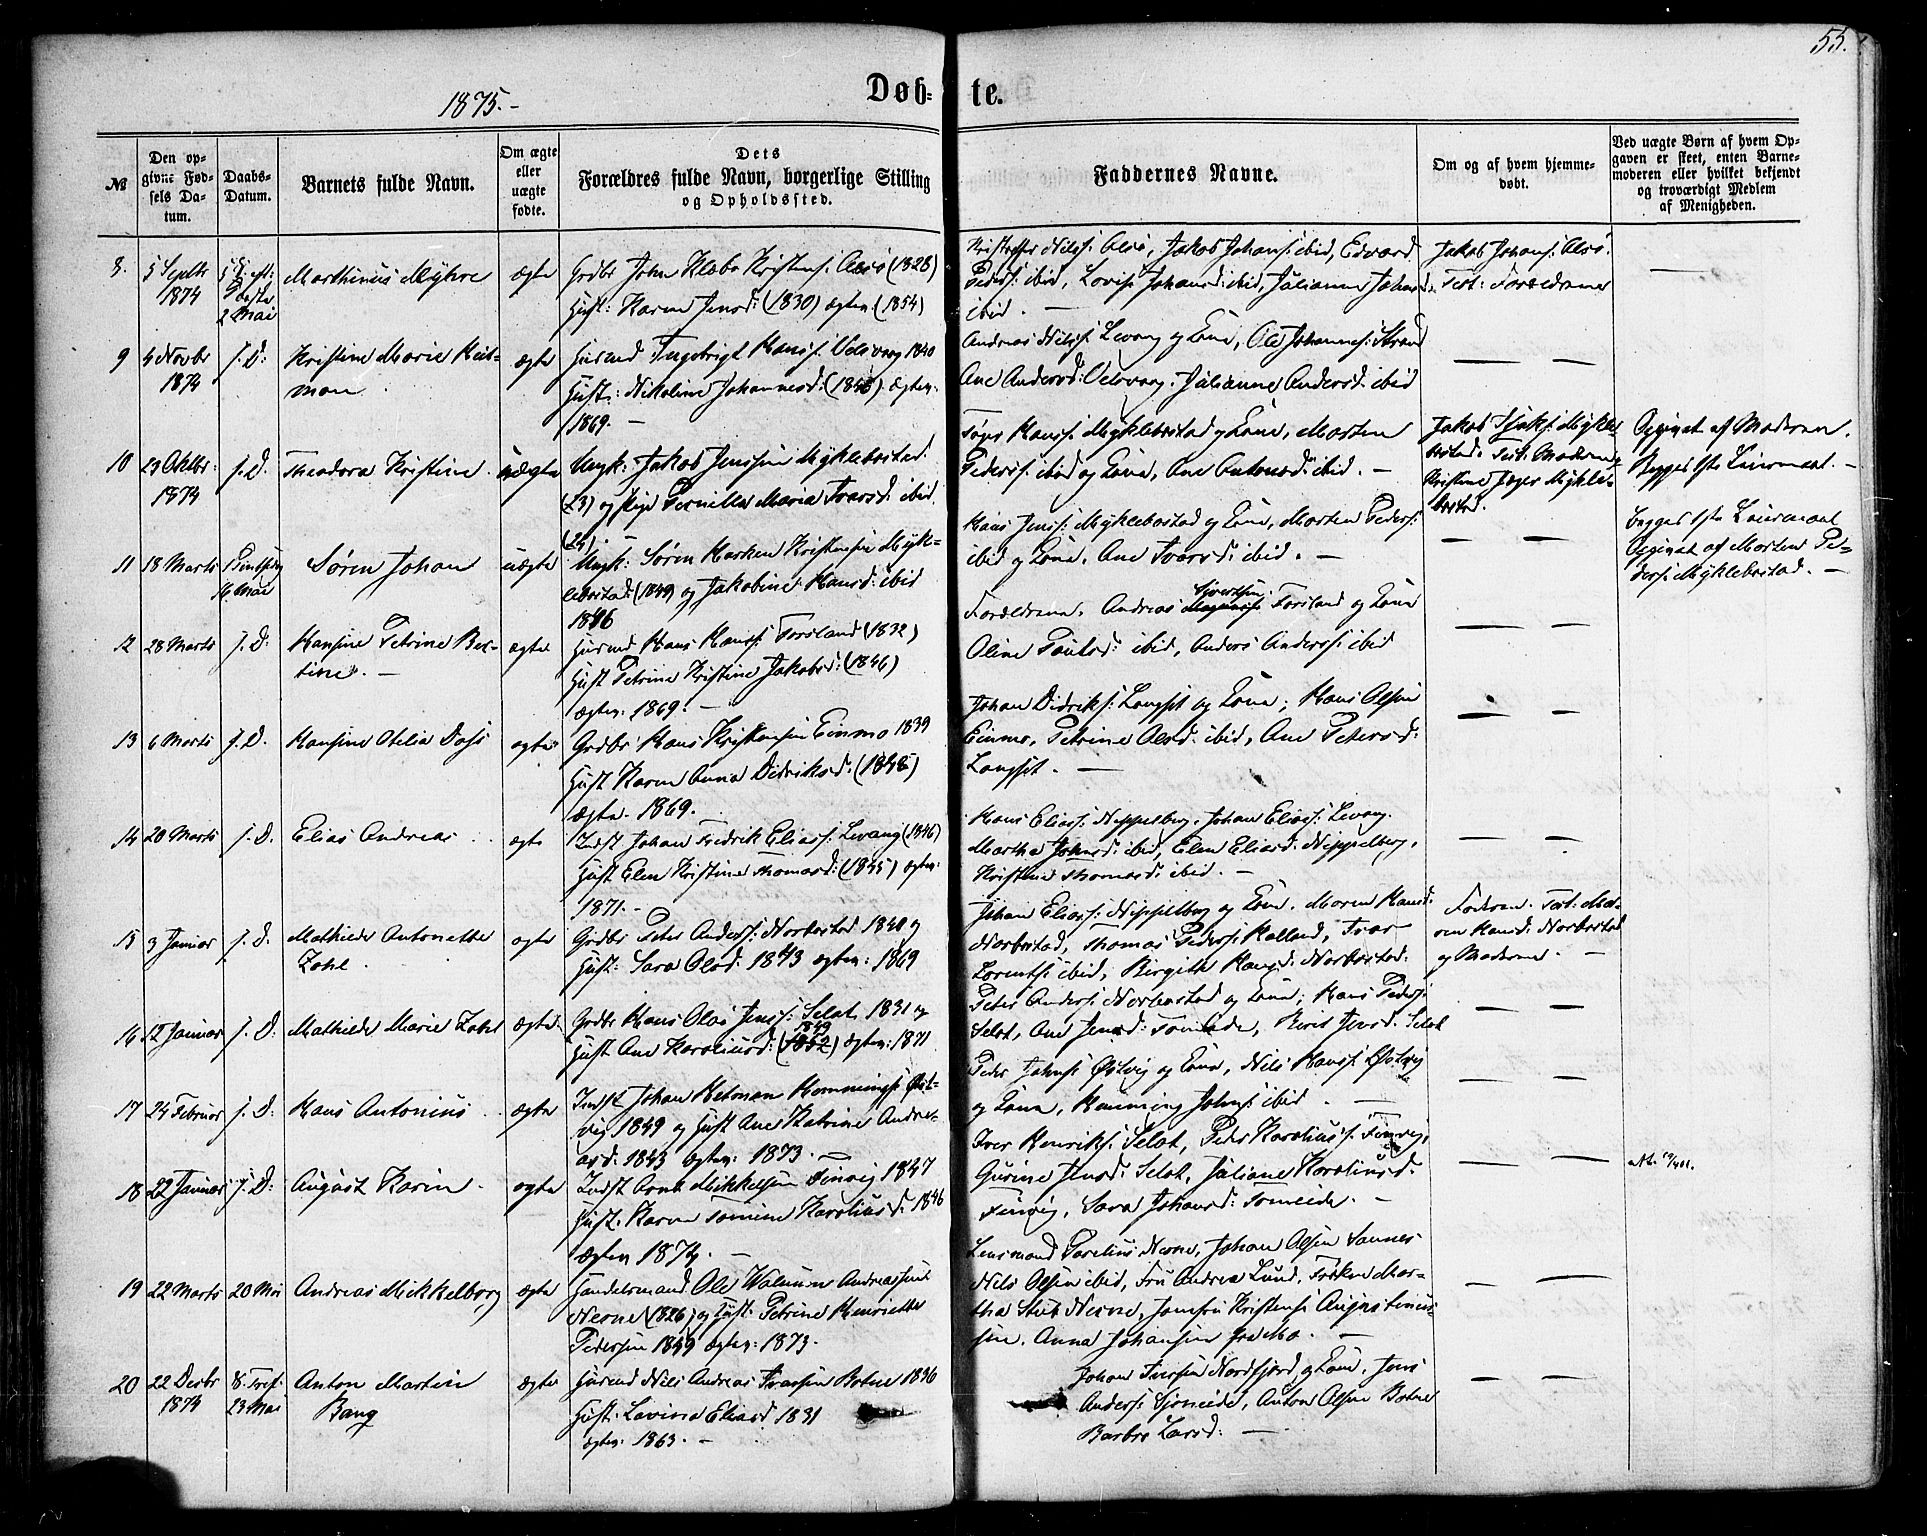 55.
1875.-
Døb-
te.
№
Den op-
givne Fød-
sels Da-
tum.
Daabs-
Datum.
Barnets fulde Navn.
Om ægte
eller
uægte
fødte.
Dets
Forældres fulde Navn, borgerlige Stilling
og Opholdssted.
Faddernes Navne.
Om og af hvem hjemme-
døbt.
Ved uægte Børn af hvem Op-
gaven er skeet, enten Barne-
moderen eller hvilket bekjendt
og troværdigt Medlem
af Menigheden.
8.
5 Septbr
1874
2 Mai
Marthinus Myhre
ægte
Grdbr John Klebo Kristens: Alsø (1828)
Hust: Karen Jensd: (1830) ægtev. (1854)
Kristoffer Nilss: Alsø, Jakob Johans: ibid, Edvard
Peders: ibid, Lovise Johansd: ibid, Julianne Johansd.
ibid. —
Jakob Johans: Alsø.
Test: Forældrene
9
4 Novbr
1874
s. D:
Kristine Marie Heit-
man
ægte
Husmd Ingebrigt Hanss: Velsvaag 1840
Hust: Nikoline Johannesd: (1846) ægtev.
1869. —
Andreas Nilss: Levang og Kone, Ole Johanness: Strand
Ane Andersd: Velsvaag, Julianne Andersd: ibid
10
23 Oktbr:
1874
s. D.
Theodora Kristine
uægte
Ungk: Jakob Jenssen Myklebostad
(23) og Pige Pernille Maria Ivarsd: ibid
(24). —
Hanss: Myklebostad og Kone, Morten
Pederss: ibid og Kone, Ane Antonsd: ibid. —
Jakob Myklebostad. Test. Moderen,
Kristine Jæger Mykle-
bostad.
Opgivet af Moderen.
Begges 1ste Leiermaal. —
11
18 Marts
16 Mai
Søren Johan
uægte
Ungk: Søren Marken Kristensen Myk-
lebostad: (1849) og Jakobine Hansd: ibid
1846
Hans Jenss: Myklebostad og Kone, Morten Peders:
ibid og Kone, Ane Ivarsd: ibid. —
begges 1ste Leiermaal
Opgivet af Morten Pe-
ders: Myklebostad. —
12
28 Marts
s. D.
Hansine Petrine Ber-
tine. —
ægte
Husmd Hans Hanss: Forsland (1832)
Hust Petrine Kristine Jakobsd: (1846)
ægtev. 1869. —
Forældrene, Andreas Sjvertsen Forsland og Kone
Oline Paulsd: ibid, Anders Anderss: ibid
13
6 Marts
s. D.
Hansine Otelia Dass
ægte
Grdbr Hans Kristensen Einmo 1839
Hust Karen Anna Didriksd. (1848)
ægtev. 1869.
Johan Didriks: Langset og Kone, Hans Olsen
Einmo, Petrine Olsd: ibid, Ane Petersd:
Langset. —
14
20 Marts
s. D.
Elias Andreas
ægte
Indst Johan Fredrik Eliass: Levang (1846)
Hust Elen Kristine Thomasd: (1845) ægtev:
1871. —
Hans Eliass: Nippelberg, Johan Eliass: Levang.
Martha Johnsd: ibid, Elen Eliasd: Nippelberg,
Kristine Thomasd: ibid. —
15
3 Januar
s. D.
Mathilde Antonette
Zahl
ægte
Grdbr Peter Anders: Norbostad 1840 og
Hust: Sara Olsd: 1843 ægtev: 1869
Johan Eliass: Nippelberg og Kone. Maren Hansd:
Norbostad, Thomas Peders: Halland, Ivar
Lorents: ibid, Birgith Hansd: Norbostad.
Faderen. Test. Ma-
ren Hansd: Norbostad
og Moderen. —
16
12 Januar
s. D:
Mathilde Marie Zahl
ægte
Grdbr Hans Olai Jens: Selat, 1831 og
1849
Hust Ane Karoliusd: (1852) ægtev: 1871
Peter Anders: Norbostad og Kone, Hans Peders:
Selat, Ane Jensd: Tomeide, Beret Iversd: Selat
17
24 Februar
s. D:
Hans Antonius
ægte
Indst Johan Hetman Hemmings: Øst-
vig 1849 og Hust Ane Katrine Andre-
asd: 1843 ægtev: 1873. —
Peder Johns: Østvig og Kone, Nils Hans: Østvig
og Kone, Hemming Johns: ibid. —
18
22 Januar
s. D:
August Karin
ægte
Indst Arnt Mikkelsen Finvig 1847
Hust: Karen Tomine Karoliusd: 1846
ægtev 1874. —
Iver Henriks: Selat, Peder Karolius's: Finvig,
Gurine Jensd: Selat, Juliane Karoliusd.
Finvig, Sara Johansd: Tomeide. —
19
22 Marts
20 Mai
Andreas Mikkelborg
ægte
Handelsmand Ole Walnum Andreassen
Nesne (1826) og Hust: Petrine Henriette
Pedersen 1849 ægtev: 1873.
Lensmand Parelius Nesne, Johan Olsen Sannes
Nils Olsen ibid, Fru Andrea Lund, Frøken Mar-
tha Stub Nesne, Jomfru Kristense Augustinus-
sen. Anna Johansen fra Mo. —
20
22 Decbr
1874
23 Mai
Anton Martin
Bang
ægte
Husmd Nils Andreas Ivarsen Botne 1836
Hust: Lavina Eliasd 1831
ægtev: 1863. —
Johan Iversen Nordfjord og Kone, Jens
Anders: Sjoneide, Anton Olsen Botne
Barbro Larsd: —